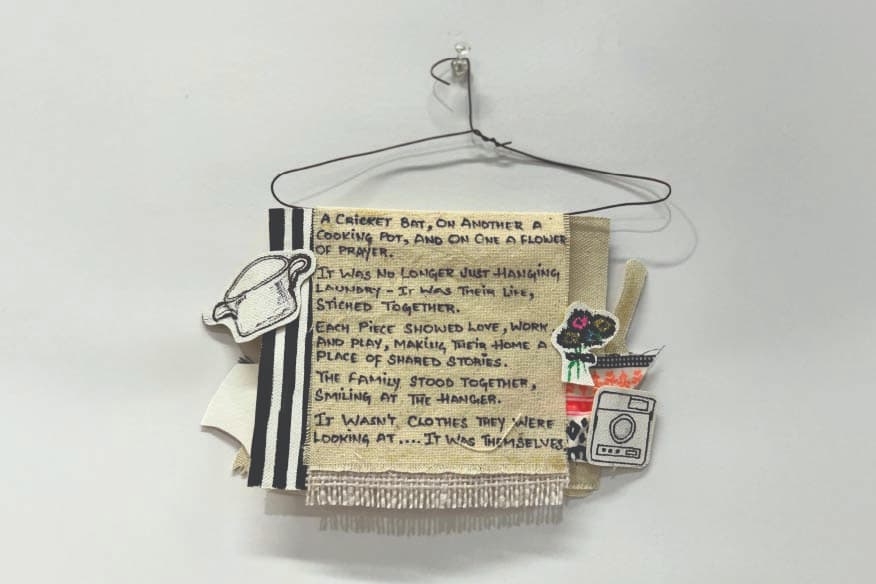 A CRICKET BAT, ON ANOTHER A
COOKING POT, AND ON ONE A FLOWER
OF PRAYER.
IT WAS NO LONGER JUST HANGING
LAUNDRY - IT WAS THEIR LIFE,
STICHED TOGETHER.
EACH PIECE SHOWED LOVE, WORK
AND PLAY, MAKING THEIR HOME A
PLACE OF SHARED STORIES.
THE FAMILY STOOD TOGETHER,
SMILING AT THE HANGER.
IT WASN'T CLOTHES THEY WERE
LOOKING AT .... IT WAS THEMSELVES